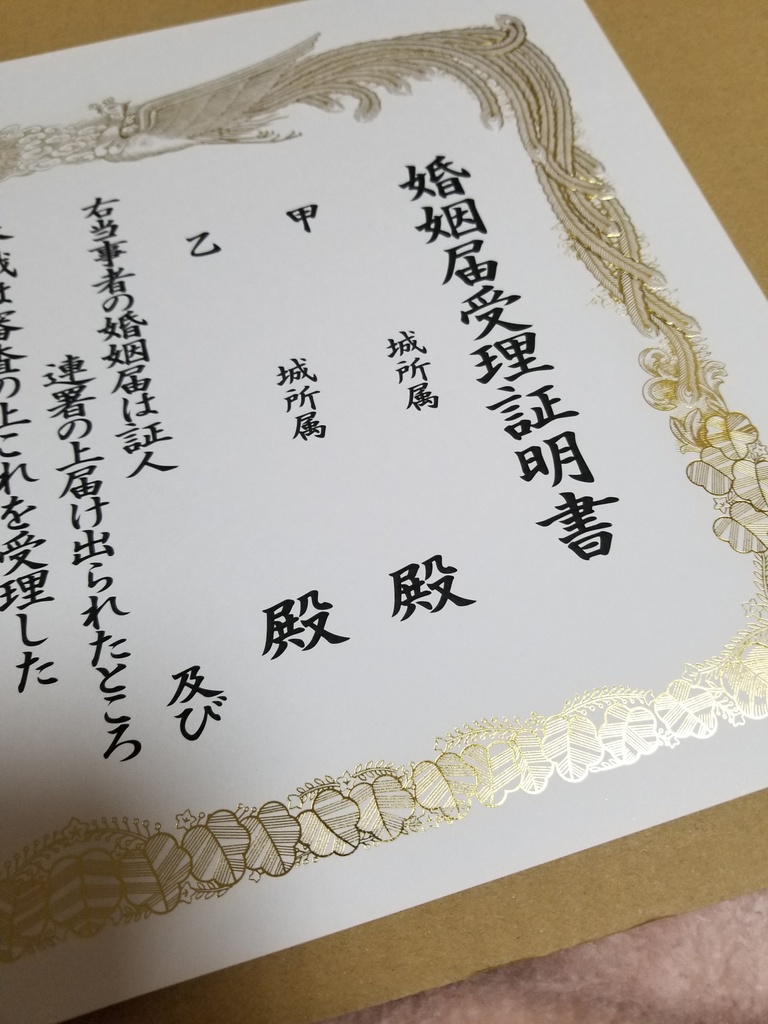 婚姻届受理証明書
甲
城所属
殿
乙
城所属
殿
右当事者の婚姻届は証人
及び
連署の上届け出られたところ
は審査の上これを受理した